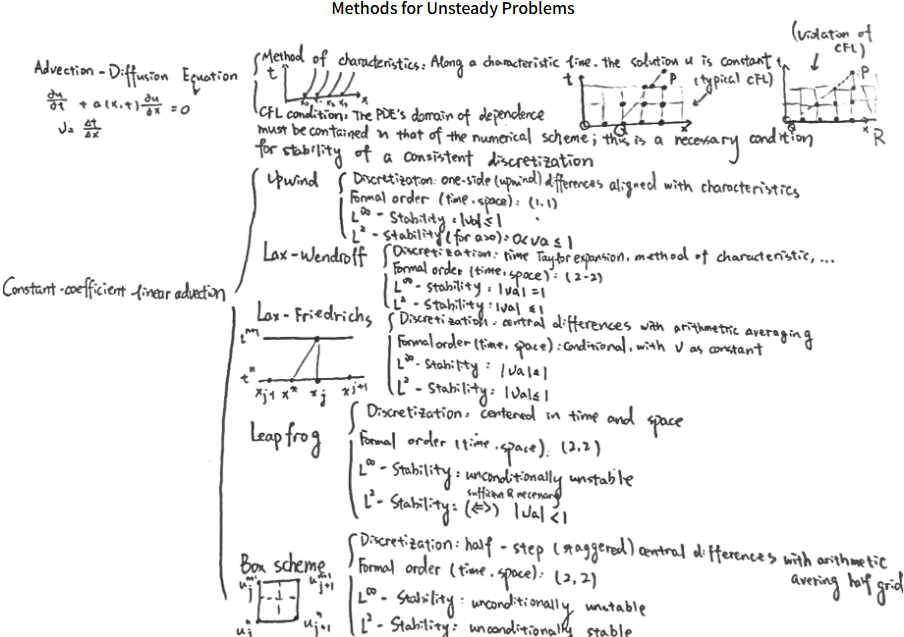 Methods for Unsteady Problems
(Violation of CFL)
Advection-Diffusion Equation
∂u/∂t + a(x,t) ∂u/∂x = 0
ν = Δt/Δx
Method of characteristics: Along a characteristic line. the solution u is constant
t
x
t
P
Q
x
(typical CFL)
t
P
Q
x
R
CFL condition: The PDE's domain of dependence
must be contained in that of the numerical scheme; this is a necessary condition
for stability of a consistent discretization
Constant-coefficient-linear advection
Upwind
Discretization: one-side (upwind) differences aligned with characteristics
Formal order (time, space): (1,1)
L^∞ - Stability: |νa| ≤ 1
L² - Stability (for a>0): 0<νa ≤ 1
Lax-Wendroff
Discretization: time Taylor expansion, method of characteristic, ...
Formal order (time, space): (2-2)
L^∞ - Stability: |νa| = 1
L² - Stability: |νa| ≤ 1
Lax-Friedrichs
t^n+1
t^n
x_j-1 x* x_j x_j+1
Discretization: central differences with arithmetric averaging
Formal order (time, space): Conditional, with ν as constant
L^∞ - Stability: |νa| ≤ 1
L² - Stability: |νa| ≤ 1
Leapfrog
Discretization: centered in time and space
Formal order (time, space): (2,2)
L^∞ - Stability: unconditionally unstable
L² - Stability: (⇔) |νa| < 1
Box scheme
u_j^n+1 u_j+1^n+1
u_j^n u_j+1^n
Discretization: half-step (staggered) central differences with arithmetic
avering half grid
Formal order (time, space): (2,2)
L^∞ - Stability: unconditionally unstable
L² - Stability: unconditionally stable